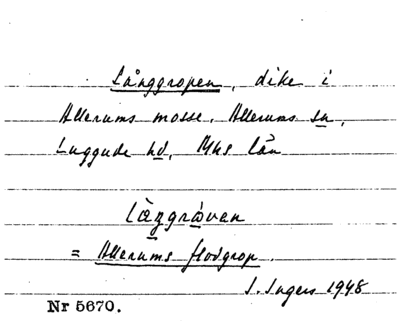 Långgropen, dike i
Allerums mosse, Allerums sn,
Luggude hd, Mhs län
låŋgråven
= Allerums flodgrop.
I. Ingers 1948
Nr 5670.